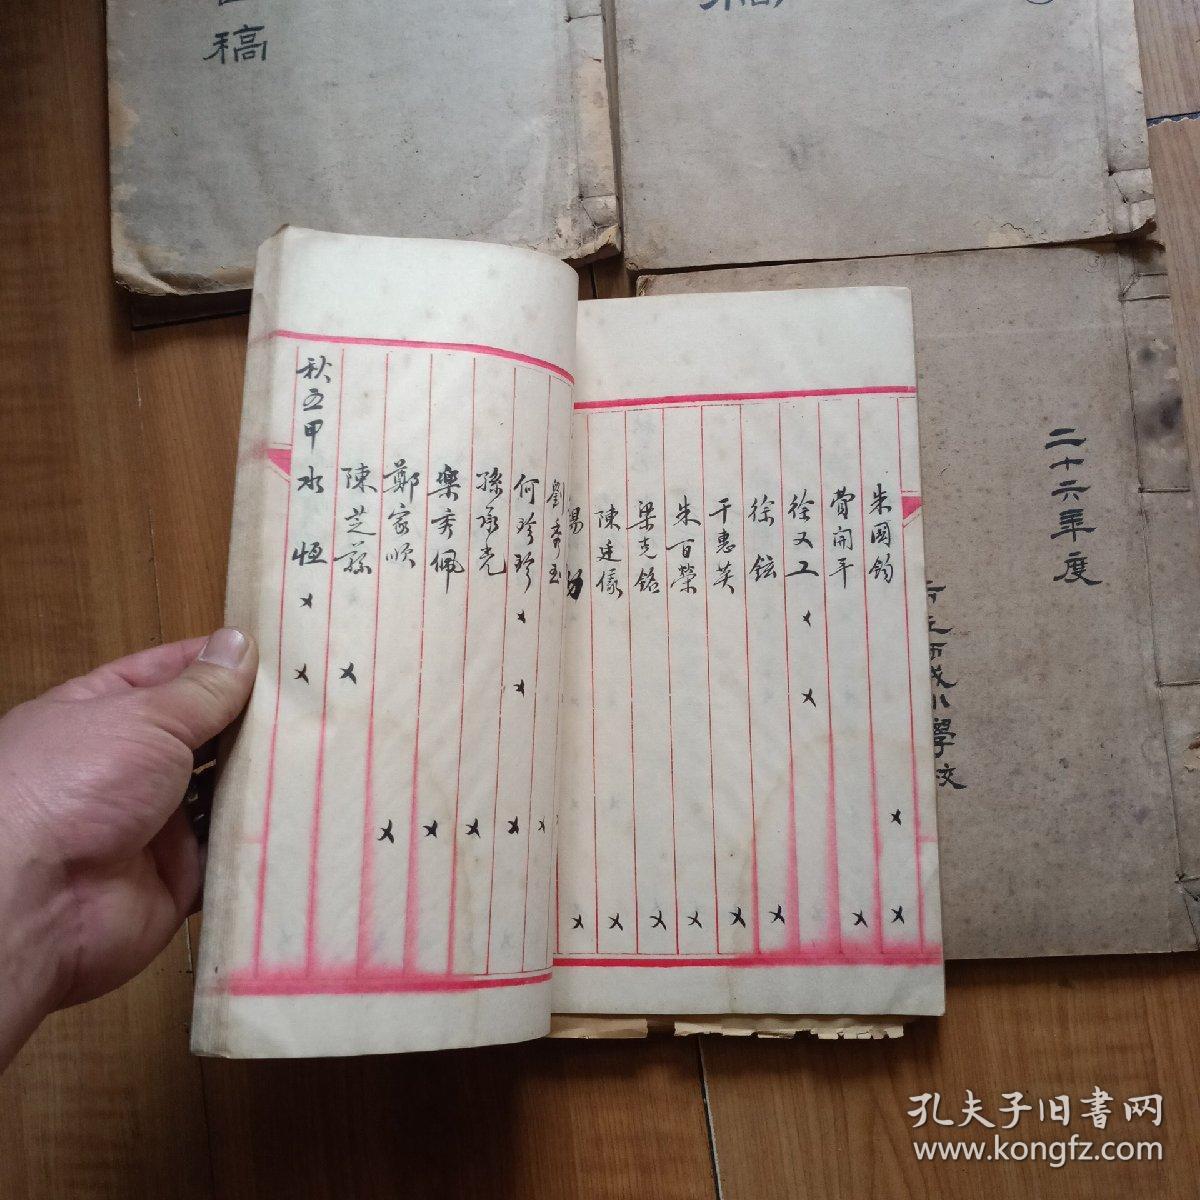 稿
稿
二十六年度
市立西成小學校
朱國鈞
費開平
徐又工
徐鉉
干惠英
朱百榮
梁克銘
陳廷儀
楊
劉秀玉
何珍珍
孫承光
樂秀佩
鄭家順
陳芝蓀
秋五甲 水恒
孔夫子旧書网
www.kongfz.com